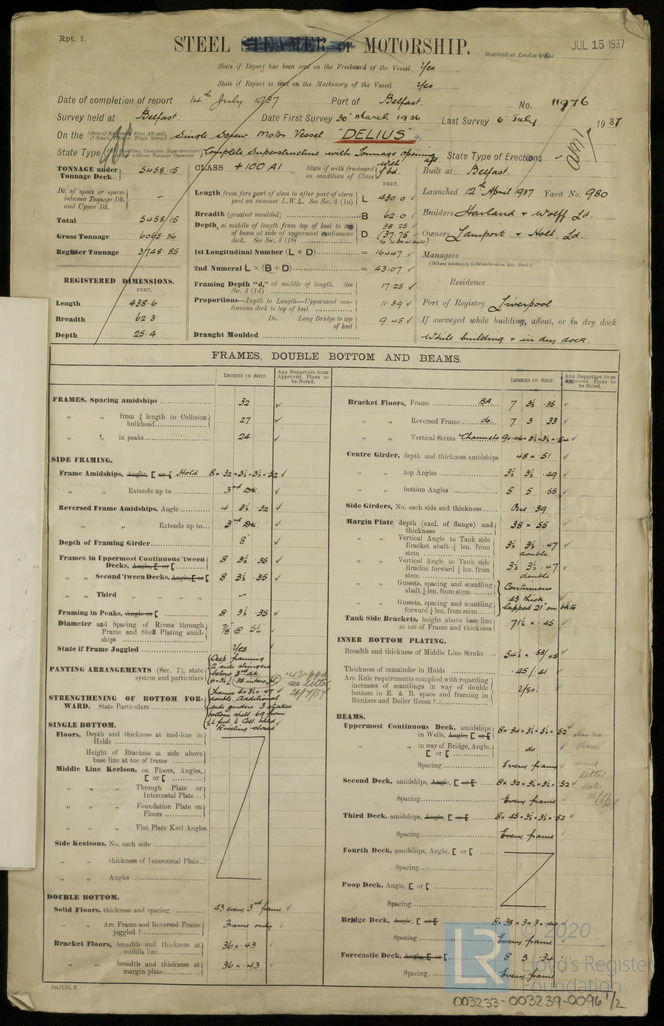 Rpt. 1.
STEEL STEAMER or MOTORSHIP.
Received at London Office
JUL 15 1937
State if Report has been sent on the Freeboard of the Vessel Yes
State if Report is sent on the Machinery of the Vessel Yes
Date of completion of report 14th July 1937 Port of Belfast. No. 11976
Survey held at Belfast. Date First Survey 30th March 1936 Last Survey 6th July 1937
On the Single Screw Motor Vessel "DELIUS"
State Type Complete Superstructure with Tonnage opening aft. State Type of Erections
TONNAGE under Tonnage Deck 5458.15
Do. of space or spaces between Tonnage Dk. and Upper Dk. -
Total 5458.15
Gross Tonnage 6045.36
Register Tonnage 3748.85
REGISTERED DIMENSIONS.
FEET.
Length 438.6
Breadth 62.3
Depth 25.4
CLASS +100 A1 State if with freeboard as condition of Class with fbd.
FEET.
Length from fore part of stem to after part of stern post on summer L.W.L. See Sec. 3 (1a) L 430.0
Breadth (greatest moulded) B 62.0
Depth, at middle of length from top of keel to top of beam at side of uppermost continuous deck. See Sec. 3 (1g) D 38.25 (37.75
1st Longitudinal Number (L × D) = 16447
2nd Numeral L × (B + D) = 43107
Framing Depth "d," at middle of length. See Sec. 3 (1d) 17.25
Proportions—Depth to Length—Uppermost continuous deck to top of keel 11.39
Do. Long Bridge to top of keel 9.45
Draught Moulded
Built at Belfast.
Launched 12th April 1937 Yard No. 980
Builders Harland & Wolff Ld.
Owners Lamport & Holt Ld.
Managers
(Where necessary to be entered in Reg. Book)
Residence
Port of Registry Liverpool
If surveyed while building, afloat, or in dry dock
While building & in dry dock.
FRAMES, DOUBLE BOTTOM AND BEAMS.
INCHES IN SHIP. Any Departure from Approved Plans to be Noted.
FRAMES, Spacing amidships 32
" " from ⅗ length to Collision bulkhead 27
" " in peaks 24
SIDE FRAMING.
Frame Amidships, Angle, [ or [ Hold 8 × 32 × 3½ × 3½ × 52
" " Extends up to 3rd Dk.
Reversed Frame Amidships, Angle 4 3½ .32
" " Extends up to 3rd Dk.
Depth of Framing Girder 8
Frames in Uppermost Continuous 'tween Decks, Angle, [ or [ 8 3½ .35
" Second 'tween Decks, Angle, [ or [ 8 3½ .35
" Third " "
Framing in Peaks, Angle or [ 8 3½ .35
Diameter and Spacing of Rivets through Frame and Shell Plating amidships ⅞ @ 5½
State if Frame Joggled Yes
PANTING ARRANGEMENTS (Sec. 7), state system and particulars Deep framing 2 side stringers below 3rd dk.
STRENGTHENING OF BOTTOM FORWARD. State Particulars
SINGLE BOTTOM.
Floors, Depth and thickness at mid-line in Holds
" Height of Brackets at side above base line at toe of frame
Middle Line Keelson, on Floors, Angles, [ or [
" " Through Plate or Intercostal Plate
" " Foundation Plate on Floors
" " Flat Plate Keel Angles
Side Keelsons, No. each side
" " thickness of Intercostal Plate
" " Angles
DOUBLE BOTTOM.
Solid Floors, thickness and spacing .43 every 3rd frame
" " Are Frame and Reversed Frame joggled? Frame only
Bracket Floors, breadth and thickness at middle line 36 × .43
" " breadth and thickness at margin plate 36 × .43
INCHES IN SHIP. Any Departure from Approved Plans to be Noted.
Bracket Floors, Frame BA 7 3½ .35
" " Reversed Frame do. 7 3 .33
" " Vertical Struts Channels
Centre Girder, depth and thickness amidships 48 × 51
" " top Angles 3½ 3½ .49
" " bottom Angles 5 5 .55
Side Girders, No. each side and thickness One .39
Margin Plate depth (excl. of flange) and thickness 38 × .55
" " Vertical Angle to Tank side Bracket abaft ¼ len. from stem 3½ 3½ .47 double
" " Vertical Angle to Tank side Bracket forward ¼ len. from stem 3½ 3½ .47 double
" " Gussets, spacing and scantling abaft ¼ len. from stem Continuous
" " Gussets, spacing and scantling forward ¼ len. from stem .43 thick lapped 21" on bkts
Tank Side Brackets, height above base line at toe of Frame and thickness 71½ × .45
INNER BOTTOM PLATING.
Breadth and thickness of Middle Line Strake
Thickness of remainder in Holds .45/.41
Are Rule requirements complied with regarding increases of scantlings in way of double bottom in E. & B. space and framing in Bunkers and Boiler Room? Yes.
BEAMS.
Uppermost Continuous Deck, amidships in Wells, Angle, [ or [
" " in way of Bridge, Angle, [ or [ do
Spacing Every frame
Second Deck, amidships, Angle, [ or [ 8 × 32 × 3½ × 3½ × 52
Spacing Every frame
Third Deck, amidships, Angle, [ or [
Spacing Every frame
Fourth Deck, amidships, Angle, [ or [
Spacing
Poop Deck, Angle, [ or [
Spacing
Bridge Deck, Angle, [ or [ 8 × 38 × 3 × 3 × 44
Spacing Every frame
Forecastle Deck, Angle, [ or [ 8 3 .34
Spacing Every frame
LR
© 2020
Lloyd's Register
Foundation
003233-003239-0096 1/2